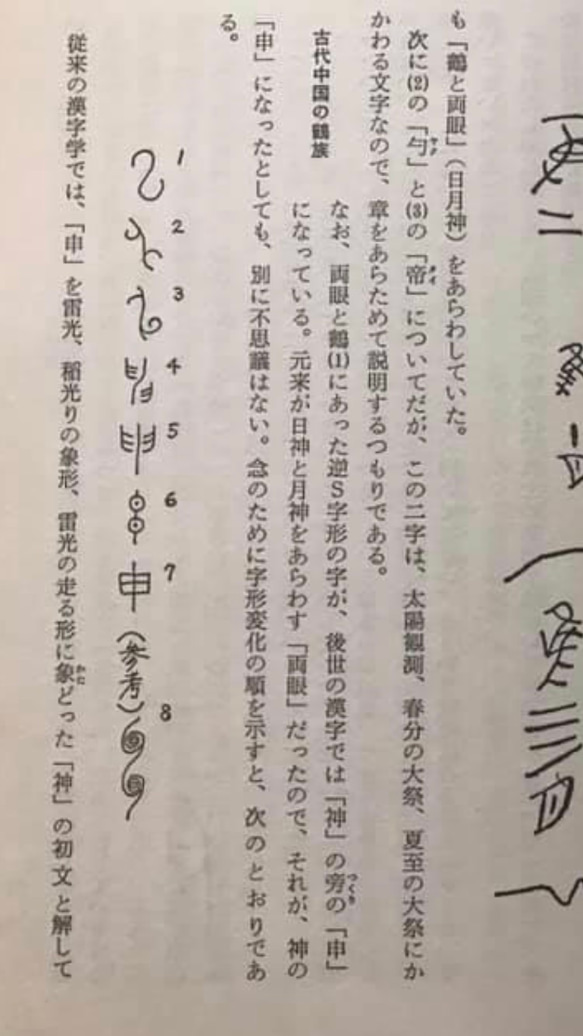 も「鶴と両眼」（日月神）をあらわしていた。
次に(2)の「勻」と(3)の「帝」についてだが、この二字は、太陽観測、春分の大祭、夏至の大祭にか
かわる文字なので、章をあらためて説明するつもりである。
古代中国の鶴族
なお、両眼と鶴(1)にあった逆S字形の字が、後世の漢字では「神」の旁の「申」
になっている。元来が日神と月神をあらわす「両眼」だったので、それが、神の
「申」になったとしても、別に不思議はない。念のために字形変化の順を示すと、次のとおりであ
る。
1 2 3 4 5 6 7 申 （参考） 8
従来の漢字学では、「申」を雷光、稲光りの象形、雷光の走る形に象どった「神」の初文と解して